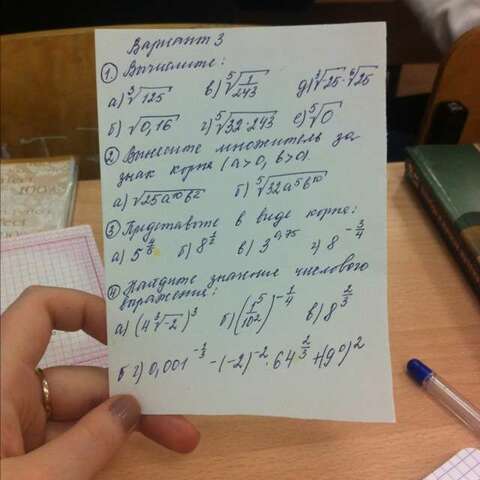 Вариант 3
① Вычислите:
а) ∛125 в) ⁵√(1/243) д) ∛25 · ⁶√25
б) √0,16 г) ⁵√(32·243) е) ⁵√0
② Вынесите множитель за
знак корня (a>0, b>0)
а) √(25a¹⁰b²) б) ⁵√(32a⁵b¹⁰)
③ Представьте в виде корня:
а) 5^ б) 8^(1/2) в) 3^(0,75) г) 8^(-3/4)
④ Найдите значение числового
выражения:
а) (4∛-2)³ б) ( )^(-1/4) в) 8^(2/3)
г) 0,001^(-1/3) - (-2)^(-2) · 64^(2/3) + (9⁰)²